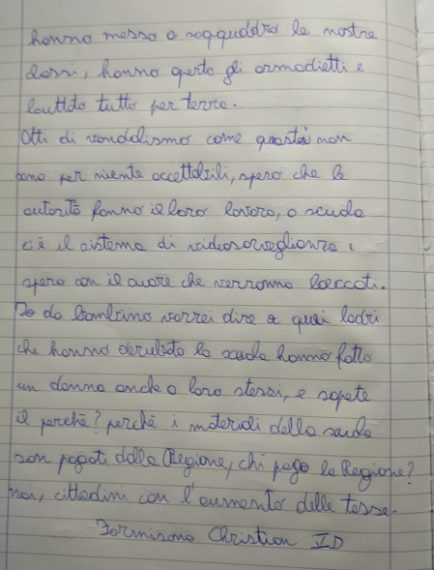 hanno messo a soqquadro le nostre
classi, hanno aperto gli armadietti e
buttato tutto per terra.
Atti di vandalismo come questi non
sono per niente accettabili, spero che le
autorità fanno il loro lavoro, a scuola
c'è il sistema di videosorveglianza e
spero con il cuore che verranno beccati.
Io da bambino vorrei dire a quei ladri
che hanno derubato la scuola hanno fatto
un danno anche a loro stessi, e sapete
il perché? perché i materiali della scuola
son pagati dalla Regione, chi paga la Regione?
noi, cittadini con l'aumento delle tasse.
Formisano Christian ID